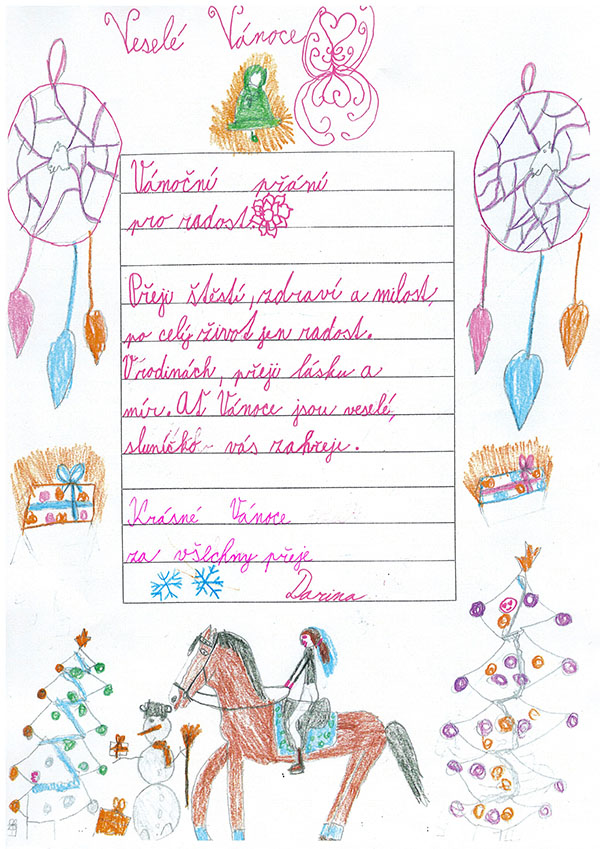 Veselé Vánoce
Vánoční přání
pro radost.
Přeji štěstí, zdraví a milost,
po celý život jen radost.
V rodinách, přeji lásku a
mír. Ať Vánoce jsou veselé,
sluníčko vás zahřeje.
Krásné Vánoce
za všechny přeje
Darina